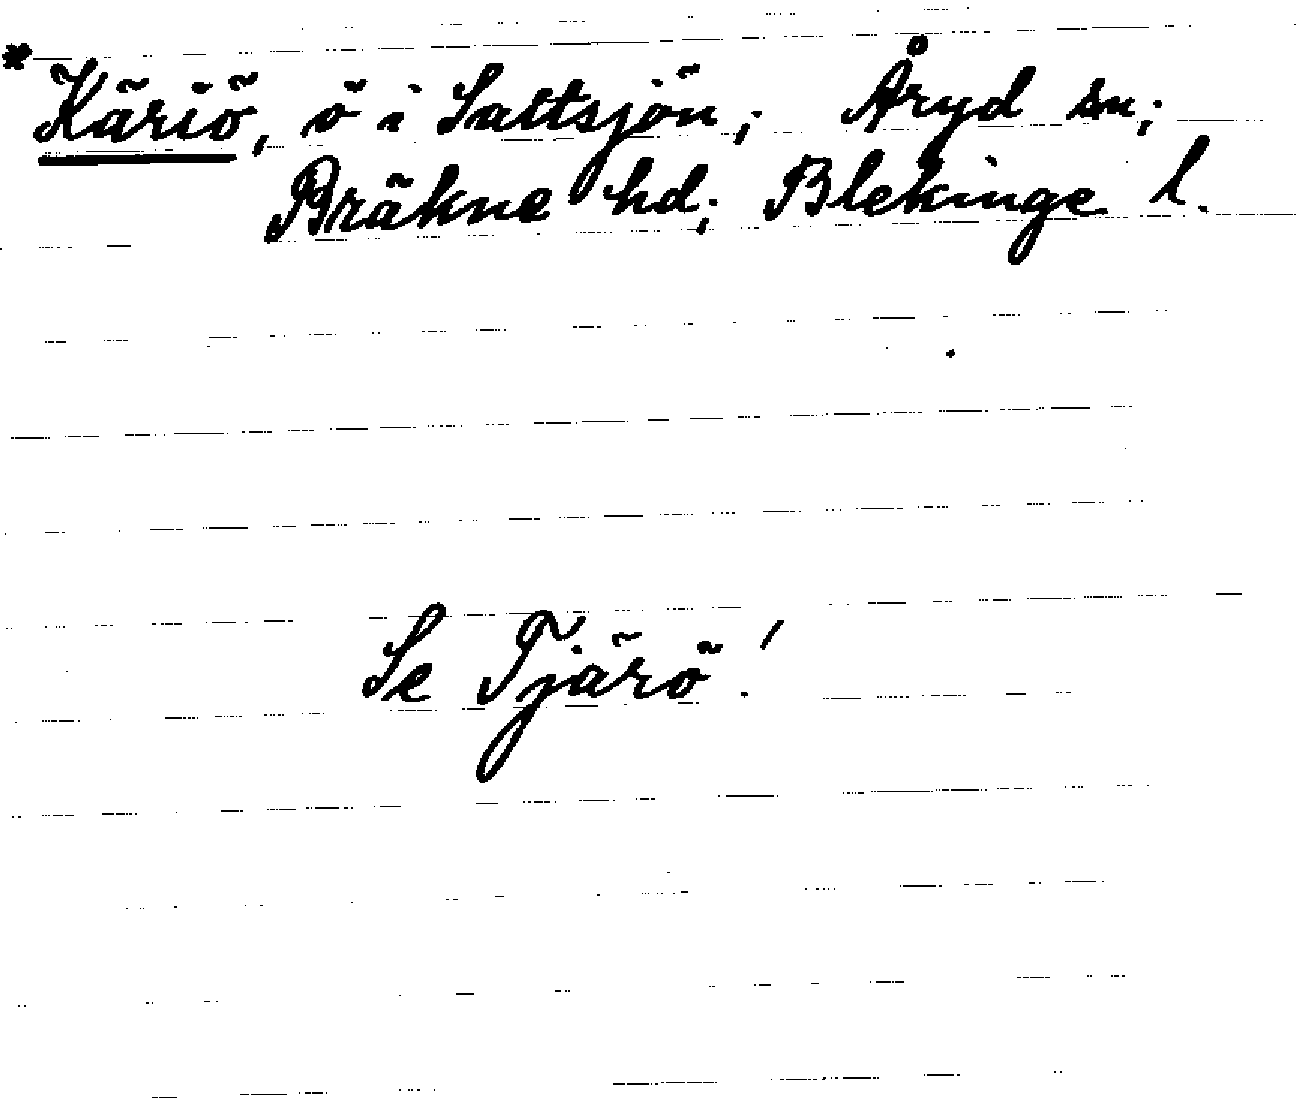 *Käriö, ö i Saltsjön; Åryd sn;
Bräkne hd; Blekinge l.
Se Tjärö!